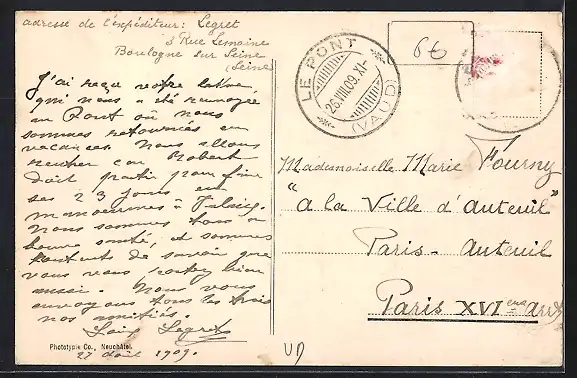 adresse de l'expéditeur: Legret
3 Rue Lemoine
Boulogne sur Seine
(Seine)
J'ai reçu votre lettre
qui nous a été renvoyée
au Pont où nous
sommes retournés en
vacances. Nous allons
rentrer car Robert
doit partir pour faire
ses 23 jours en
manoeuvres à
Nous sommes tous en
bonne santé, et sommes
contents de savoir que
vous vous portez bien
aussi. Nous vous
envoyons tous les trois
nos amitiés.
Legret
Phototypie Co., Neuchâtel
27 août 1909.
LE PONT
26.VIII.09.XI-
(VAUD)
6t
Mademoiselle Marie Fourny
"a la Ville d'Auteuil"
Paris-Auteuil
Paris XVI eme arrt